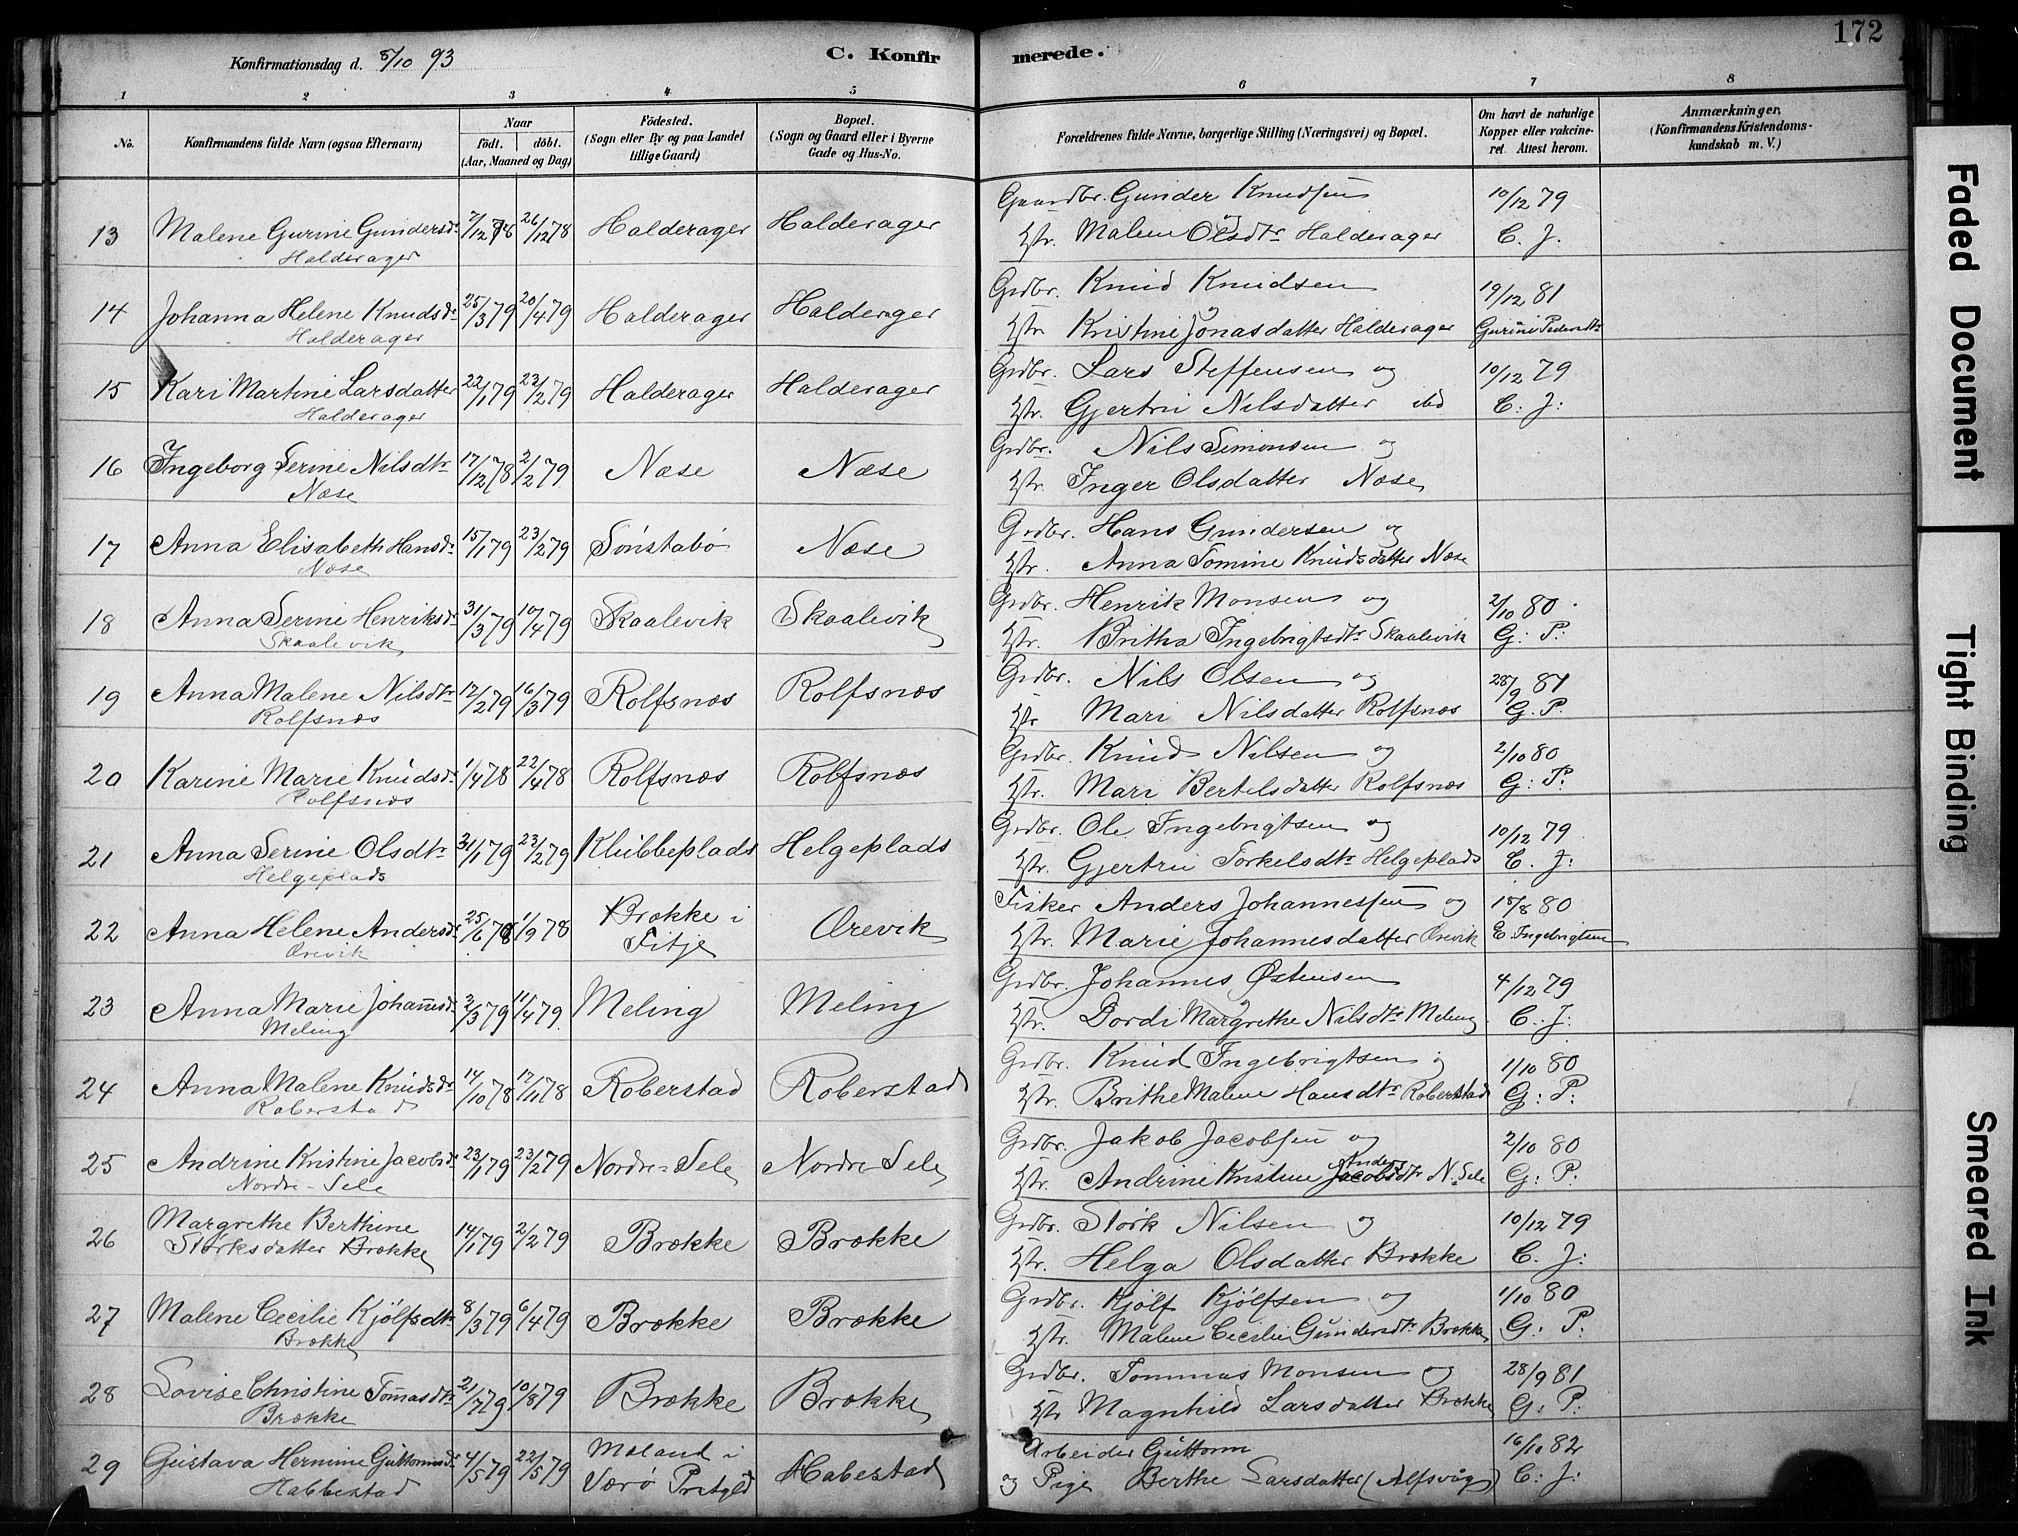 172
Konfirmationsdag d. 8/10 93
C. Konfirmerede.
1 2 3 4 5 6 7 8
No. Konfirmandens fulde Navn (ogsaa Efternavn) Naar født. døbt. (Aar, Maaned og Dag) Fødested. (Sogn eller By og paa Landet tillige Gaard) Bopæl. (Sogn og Gaard eller i Byerne Gade og Hus-No. Forældrenes fulde Navne, borgerlige Stilling (Næringsvei) og Bopæl. Om havt de naturlige Kopper eller vakcineret. Attest herom. Anmærkninger. (Konfirmandens Kristendomskundskab m. V.)
13 Malene Gurine Gundersdtr 7/12 78 26/12 78 Halderager Halderager Gaardbr. Gunder Knudsen 10/12 79
Halderager Hstr. Malene Olsdtr Halderager C. J.
14 Johanna Helene Knudsdtr 25/3 79 20/4 79 Halderager Halderager Grdbr. Knud Knudsen 19/12 81
Halderager Hstr Kristine Jonasdatter Halderager Gurine Pedersdtr
15 Kari Martine Larsdatter 22/1 79 23/2 79 Halderager Halderager Grdbr. Lars Steffensen og 10/12 79
Halderager Hstr. Gjertru Nilsdatter ibd C: J:
16 Ingeborg Serine Nilsdtr 17/12 78 2/2 79 Næse Næse Grdbr. Nils Simonsen og
Næse Hstr. Inger Olsdatter Næse
17 Anna Elisabeth Hansdtr 15/1 79 23/2 79 Sønstabø Næse Grdbr. Hans Gundersen og
Næse Hstr. Anna Tomine Knudsdatter Næse
18 Anna Serine Henriksdtr 31/3 79 10/4 79 Skaalevik Skaalevik Grdbr. Henrik Monsen og 2/10 80
Skaalevik Hstr. Britha Ingebrigtsdtr Skaalevik G: P:
19 Anna Malene Nilsdtr 12/2 79 16/3 79 Rolfsnæs Rolfsnæs Grdbr. Nils Olsen og 28/9 81
Rolfsnæs Hstr Mari Nilsdatter Rolfsnæs G. P.
20 Karine Marie Knudsdtr 1/4 78 22/4 78 Rolfsnæs Rolfsnæs Grdbr. Knud Nilsen og 2/10 80
Rolfsnæs Hstr. Mari Bertelsdatter Rolfsnæs G: P:
21 Anna Serine Olsdtr 31/1 79 23/2 79 Klubbeplads Helgeplads Grdbr. Ole Ingebrigtsen og 10/12 79
Helgeplads Hstr. Gjertru Torkelsdtr Helgeplads C. J:
22 Anna Helene Andersdtr 25/6 78 1/9 78 Brække i Fitje Orevik Fisker Anders Johannessen og 15/8 80
Orevik Hstr. Marie Johannesdatter Orevik E. Ingebrigtsen
23 Anna Marie Johannesdtr 2/3 79 11/4 79. Meling Meling Grdbr. Johannes Østensen 4/12 79
Meling Hstr. Dordi Margrethe Nilsdtr Meling C: J:
24 Anna Malene Knudsdtr 14/10 78 17/11 78 Roberstad Roberstad Grdbr. Knud Ingebrigtsen 1/10 80
Roberstad Hstr. Brithe Malene Hansdtr Roberstad G: P:
25 Andrine Kristine Jacobsdtr 23/1 79 23/2 79 Nordre-Sele Nordre-Sele Grdbr. Jakob Jacobsen og 2/10 80
Nordre-Sele Hstr. Andrine Kristine Anders Jacobsdtr N. Sele G: P:
26 Margrethe Berthine 14/1 79 2/2 79 Brække Brække Grdbr. Størk Nilsen og 10/12 79
Størksdatter Brække Hstr. Helga Olsdatter Brække C. J:
27 Malene Cecilie Kjølfsdtr 8/3 79 6/4 79 Brække Brække Grdbr. Kjølf Kjølfsen og 1/10 80
Brække Hstr. Malene Cecilie Gundersdtr Brække G: P:
28 Lovise Christine Tomasdtr 21/7 79 10/8 79 Brække Brække Grdbr. Tommas Monsen og 28/9 81
Brække Hstr Magnhild Larsdatter Brække G: P:
29 Gustava Hermine Guttormsdtr 4/5 79 22/5 79 Moland i Værø Prstgld Habestad Arbeider Guttorm 16/10 82
Habbestad og Pige Berthe Larsdatter (Alfsvåg) C: J:
Faded Document
Tight Binding
Smeared Ink